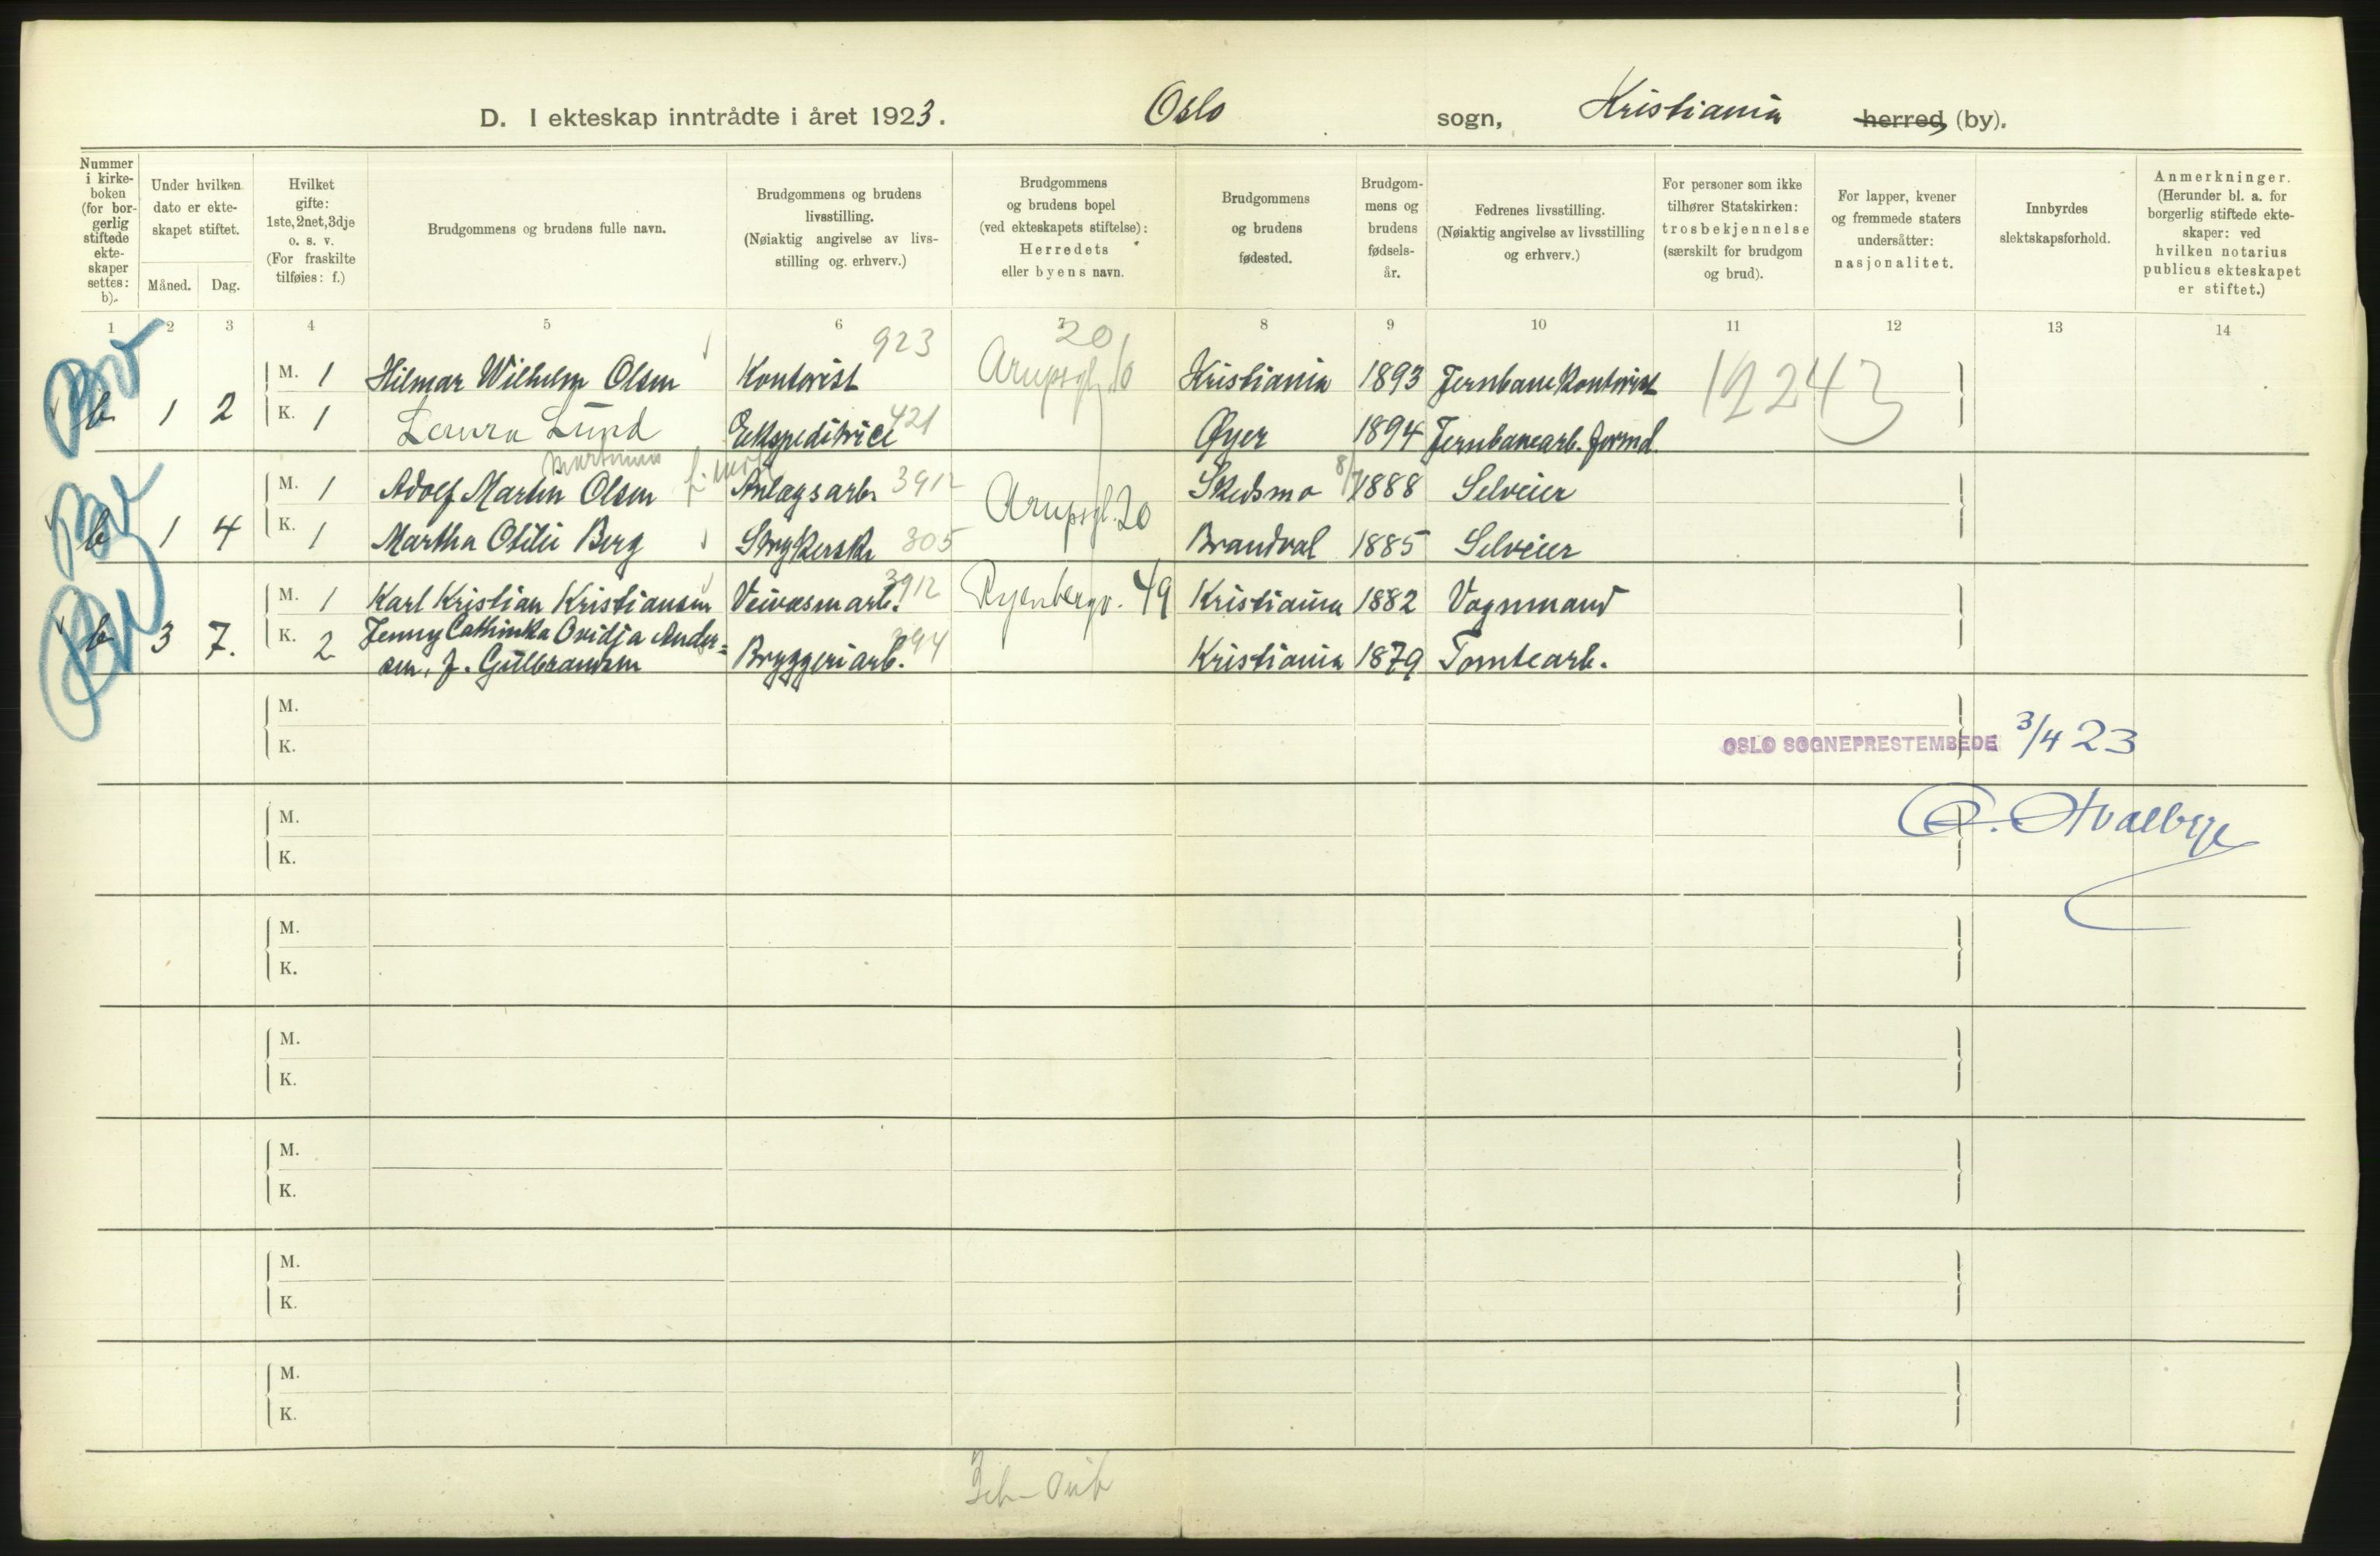 D. I ekteskap inntrådte i året 1923. Oslo sogn, Kristiania herred (by).
Nummer i kirke-boken (for bor-gerlig stiftede ekte-skaper settes: b).
Under hvilken dato er ekte-skapet stiftet.
Måned. Dag.
Hvilket gifte: 1ste, 2net, 3dje o. s. v. (For fraskilte tilføies: f.)
Brudgommens og brudens fulle navn.
Brudgommens og brudens livsstilling. (Nøiaktig angivelse av livs-stilling og erhverv.)
Brudgommens og brudens bopel (ved ekteskapets stiftelse): Herredets eller byens navn.
Brudgommens og brudens fødested.
Brudgom-mens og brudens fødsels-år.
Fedrenes livsstilling. (Nøiaktig angivelse av livsstilling og erhverv.)
For personer som ikke tilhører Statskirken: trosbekjennelse (særskilt for brudgom og brud).
For lapper, kvener og fremmede staters undersåtter: nasjonalitet.
Innbyrdes slektskapsforhold.
Anmerkninger. (Herunder bl. a. for borgerlig stiftede ekte-skaper: ved hvilken notarius publicus ekteskapet er stiftet.)
1 2 3 4 5 6 7 8 9 10 11 12 13 14
923 20
M. 1 Hilmar Wilhelm Olsen Kontorist Arupsgt. 10 Kristiania 1893 Jernbanekontorist 12243
b 1 2
K. 1 Laura Lund Ekspeditrice 421 Øyer 1894 Jernbanearb. formd.
Martinius
M. 1 Adolf Martin Olsen Anlægsarb. 3912 Skedsmo 8/7 1888 Selveier
b 1 4 Arupsgt. 20
K. 1 Martha Otilie Berg Strykerske 305 Brandval 1885 Selveier
M. 1 Karl Kristian Kristiansen Veivæsmarb. 3912 Ryenbergv. 49 Kristiania 1882 Vognmand
b 3 7.
K. 2 Jenny Cathinka Ovidja Ander-
sen, f. Gulbrandsen Bryggeriarb. 394 Kristiania 1879 Tomtearb.
M.
K. OSLO SOGNEPRESTEMBEDE 3/4 23
M.
K.
M.
K.
M.
K.
M.
K.
M.
K.
M.
K.